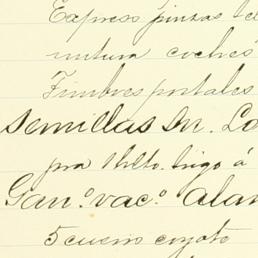 Express pinzas te
mitura coches
Timbres postales
Semillas Dn. Lo
pra 1 hlto. trigo á
Gan.º vac.º alam
5 cueros